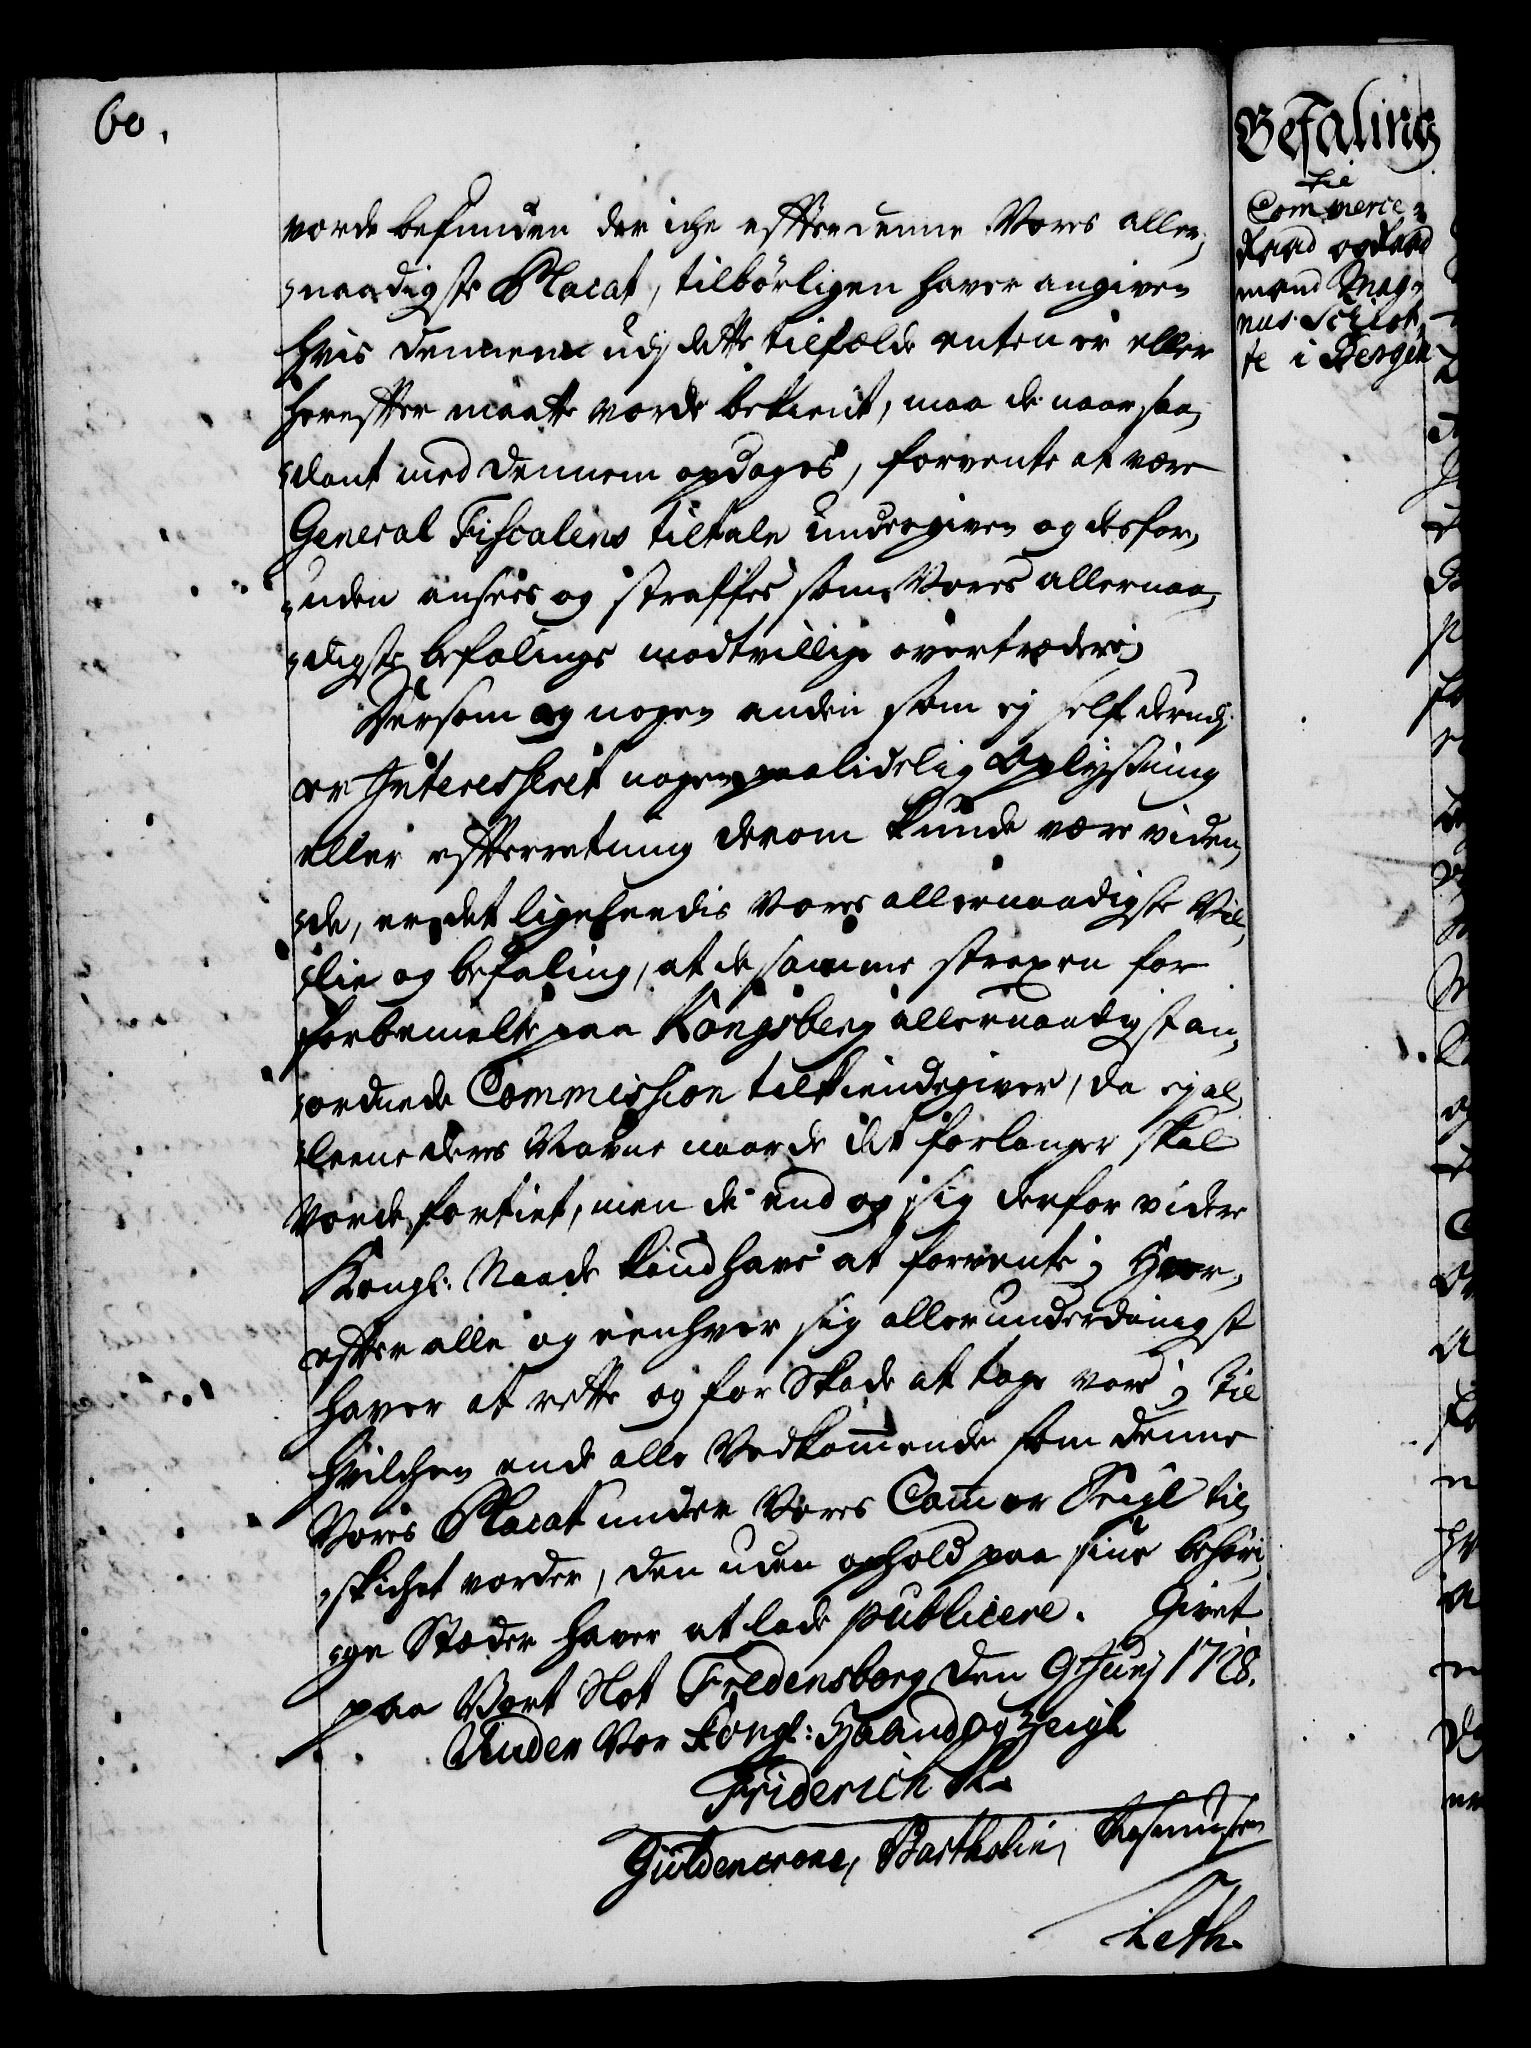 60.
vorde befunden der iche effter denne Vores aller„
„naadigste Placat, tilbørligen haver angiven
hvis dennem udj dette tilfælde enten er eller
hereffter maatte vorde bekient, maa de naar saa„
„dant med dennem opdages, forvente at være
General Fiscalens tiltale undergiven og desfor„
„uden ansees og straffes som Vores allernaa„
„digste befalings modtvillige overtrædere;
Dersom og nogen anden som ej self derudj
er Interesseret nogen paalidelig Oplysning
eller effterretning derom kunde være viden„
„de, er det ligeleedis Vores allernaadigste Vil„
„lie og befaling, at de samme straxen for
forbemelte paa Kongsberg allernaadigst an„
„ordnede Commission tilkiendegiver, da ej al„
„leene deres Navne naar de det forlanger skal
vorde fortiet, men de end og sig derfor videre
Kongl: Naade kand have at forvente; Hvor„
effter alle og eenhver sig allerunderdanigst
haver at rette og for Skade at tage vare; Til
hvilchen ende alle Vedkommende som denne
Vores Placat under Vores Cammer Seigl til„
„skichet vorder, den uden ophold paa sine behøri„
„ge Stæder haver at lade publicere. Givet
paa Vort Slot Fredensborg den 9 Junj 1728.
Under Vor Kongl: Haand og Zeigl
Friderich R.
Güldencrone, Bartholin, Rasmussen
Leth.
Befaling
til
Commerce„
Raad og Laad
mand Mag„
nus Schiøt„
te i Bergen